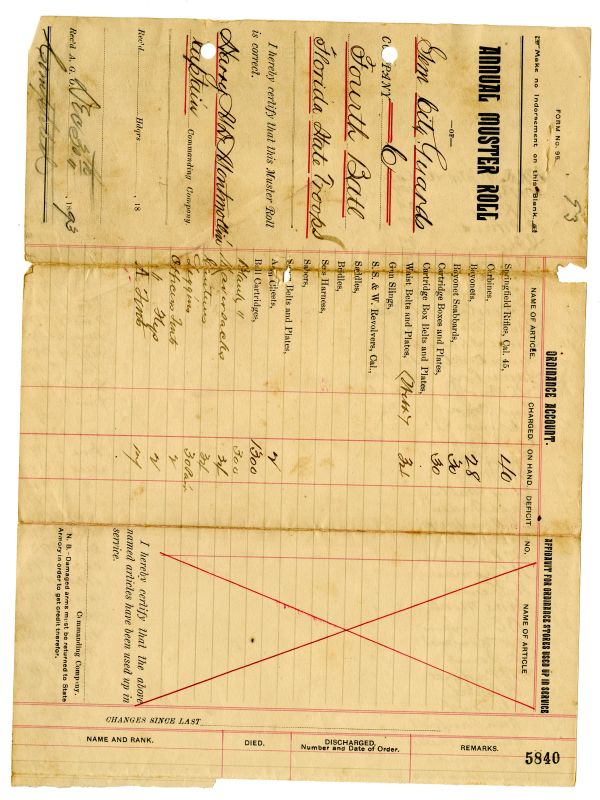 FORM No. 95.
93
Make no Indorsement on this Blank.
ANNUAL MUSTER ROLL
—OF—
Gem City Guard
COMPANY C
Fourth Batt
Florida State Troops
I hereby certify that this Muster Roll
is correct.
Captain
Commanding Company.
Rec'd Hdqrs. 18
Rec'd A. G. O. Dec 5th, 1893
ORDNANCE ACCOUNT.
NAME OF ARTICLE. CHARGED. ON HAND. DEFICIT
Springfield Rifles, Cal. 45, 40
Carbines,
Bayonets, 28
Bayonet Scabbards, 30
Cartridge Boxes and Plates, 30
Cartridge Box Belts and Plates,
Waist Belts and Plates, 34
Gun Slings,
S. & W. Revolvers, Cal.,
Saddles,
Bridles,
Sets Harness,
Sabers,
Belts and Plates,
Arm Chests, 2
Ball Cartridges, 1300
Blank " 300
Haversacks 34
Canteens 34
Leggins 30 Pair
Officers Tent 2
" Flys 2
A Tents 14
AFFIDAVIT FOR ORDNANCE STORES USED UP IN SERVICE
NO. NAME OF ARTICLE
I hereby certify that the above
named articles have been used up in
service.
Commanding Company.
N. B.—Damaged arms must be returned to State
Armory in order to get credit therefor.
CHANGES SINCE LAST
NAME AND RANK. DIED. DISCHARGED, Number and Date of Order. REMARKS.
5840